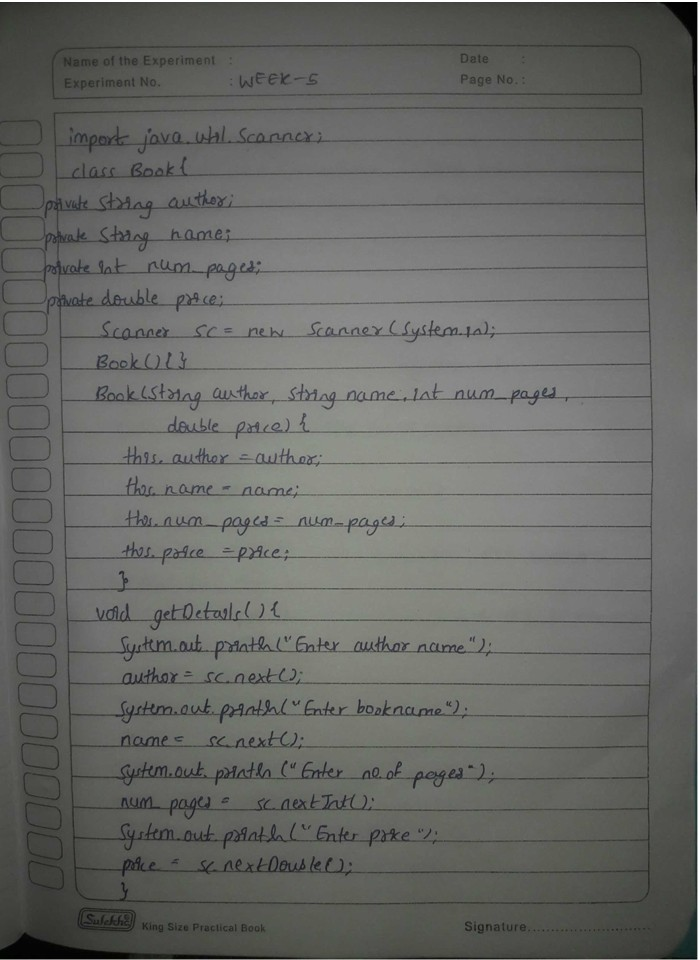 Name of the Experiment :
Date :
Experiment No. : WEEK-5
Page No. :
import java.util.Scanner;
class Book{
private String author;
private String name;
private int num_pages;
private double price;
Scanner sc = new Scanner(System.in);
Book(){}
Book(String author, String name, int num_pages,
double price){
this.author = author;
this.name = name;
this.num_pages = num_pages;
this.price = price;
}
void getDetails(){
System.out.println("Enter author name");
author = sc.next();
System.out.println("Enter bookname");
name = sc.next();
System.out.println("Enter no. of pages");
num_pages = sc.nextInt();
System.out.println("Enter price");
price = sc.nextDouble();
}
King Size Practical Book
Signature..........................